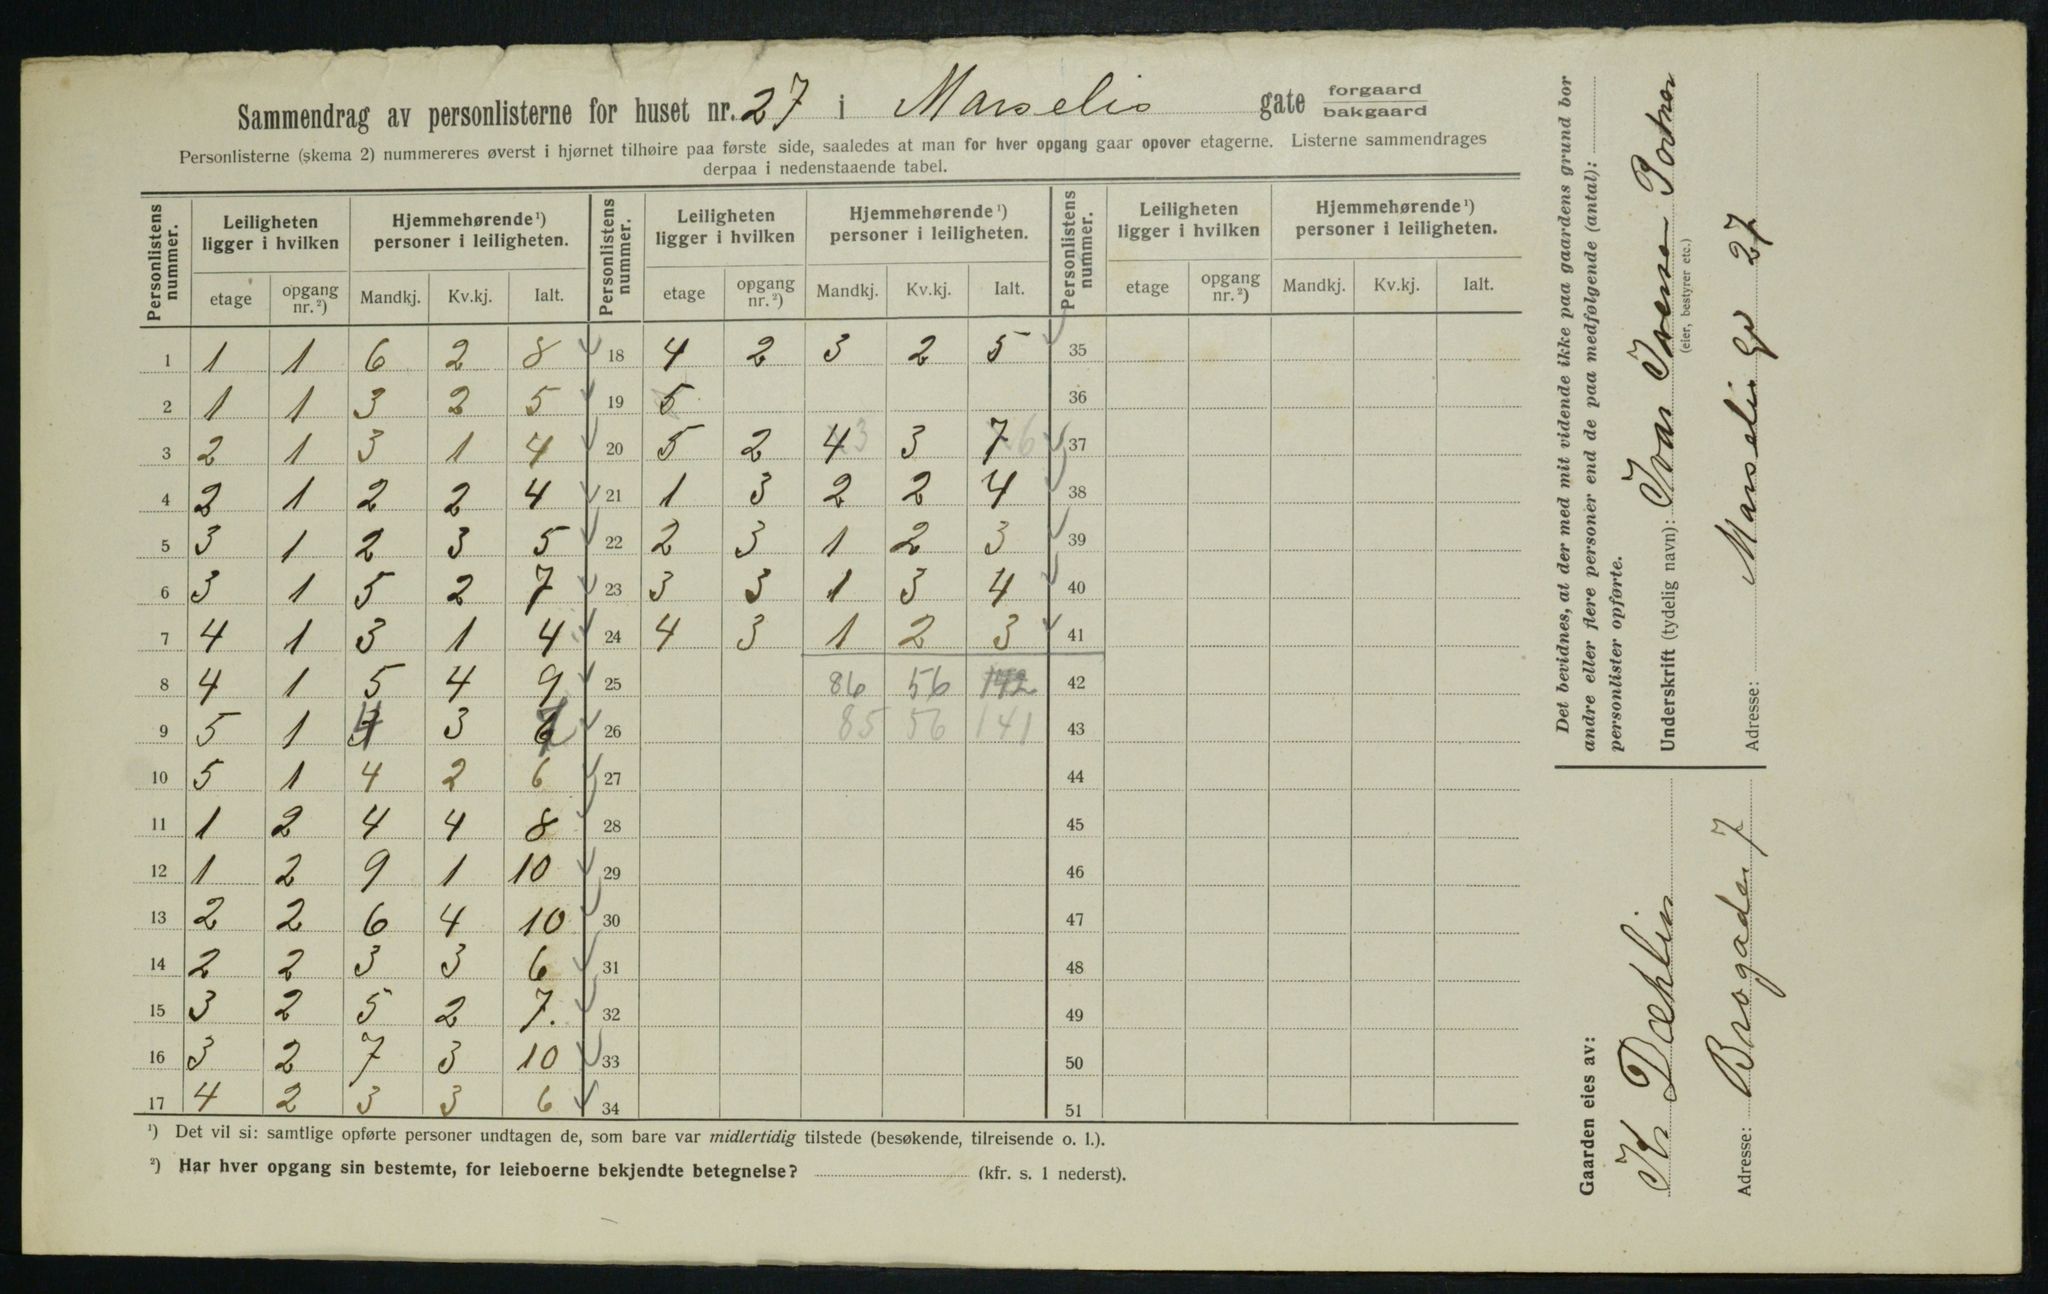 Sammendrag av personlisterne for huset nr. 27 i Marselis gate forgaard bakgaard
Personlisterne (skema 2) nummereres øverst i hjørnet tilhøire paa første side, saaledes at man for hver opgang gaar opover etagerne. Listerne sammendrages
derpaa i nedenstaaende tabel.
Personlistens nummer. Leiligheten ligger i hvilken Hjemmehørende ¹) personer i leiligheten. Personlistens nummer. Leiligheten ligger i hvilken Hjemmehørende ¹) personer i leiligheten. Personlistens nummer. Leiligheten ligger i hvilken Hjemmehørende ¹) personer i leiligheten.
etage opgang nr. ²) Mandkj. Kv.kj. Ialt. etage opgang nr. ²) Mandkj. Kv.kj. Ialt. etage opgang nr. ²) Mandkj. Kv.kj. Ialt.
1 1 1 6 2 8 18 4 2 3 2 5 35
2 1 1 3 2 5 19 5 36
3 2 1 3 1 4 20 5 2 4 3 3 7 6 37
4 2 1 2 2 4 21 1 3 2 2 4 38
5 3 1 2 3 5 22 2 3 1 2 3 39
6 3 1 5 2 7 23 3 3 1 3 4 40
7 4 1 3 1 4 24 4 3 1 2 3 41
8 4 1 5 4 9 25 86 56 142 42
9 5 1 3 4 3 6 7 26 85 56 141 43
10 5 1 4 2 6 27 44
11 1 2 4 4 8 28 45
12 1 2 9 1 10 29 46
13 2 2 6 4 10 30 47
14 2 2 3 3 6 31 48
15 3 2 5 2 7. 32 49
16 3 2 7 3 10 33 50
17 4 2 3 3 6 34 51
¹) Det vil si: samtlige opførte personer undtagen de, som bare var midlertidig tilstede (besøkende, tilreisende o. l.).
²) Har hver opgang sin bestemte, for leieboerne bekjendte betegnelse? (kfr. s. 1 nederst).
Det bevidnes, at der med mit vidende ikke paa gaardens grund bor
andre eller flere personer end de paa medfølgende (antal):
personlister opførte.
Underskrift (tydelig navn): Ivar Iversen Portner
(eier, bestyrer etc.)
Adresse: Marselis gd 27
Gaarden eies av:
K Dæhlin
Adresse: Brogaden 7